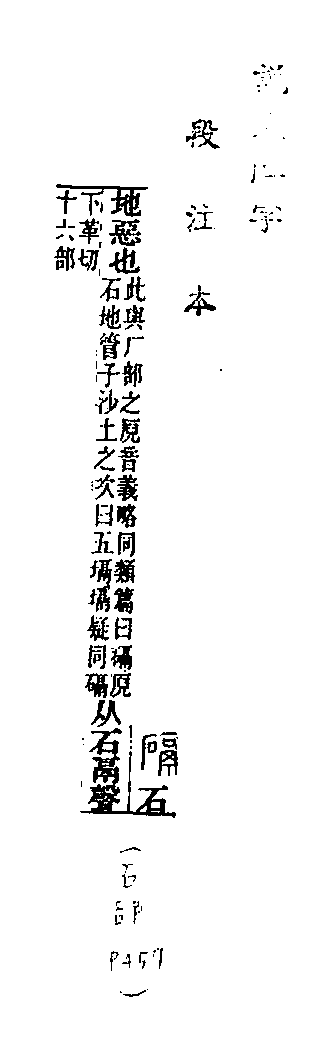 說文解字
段注本
磿石
地惡也此與厂部之㕒音義略同類篇曰磿㕒
石地管子沙土之次曰五塥塥疑同磿从石鬲聲
下革切
十六部
(石部P457)